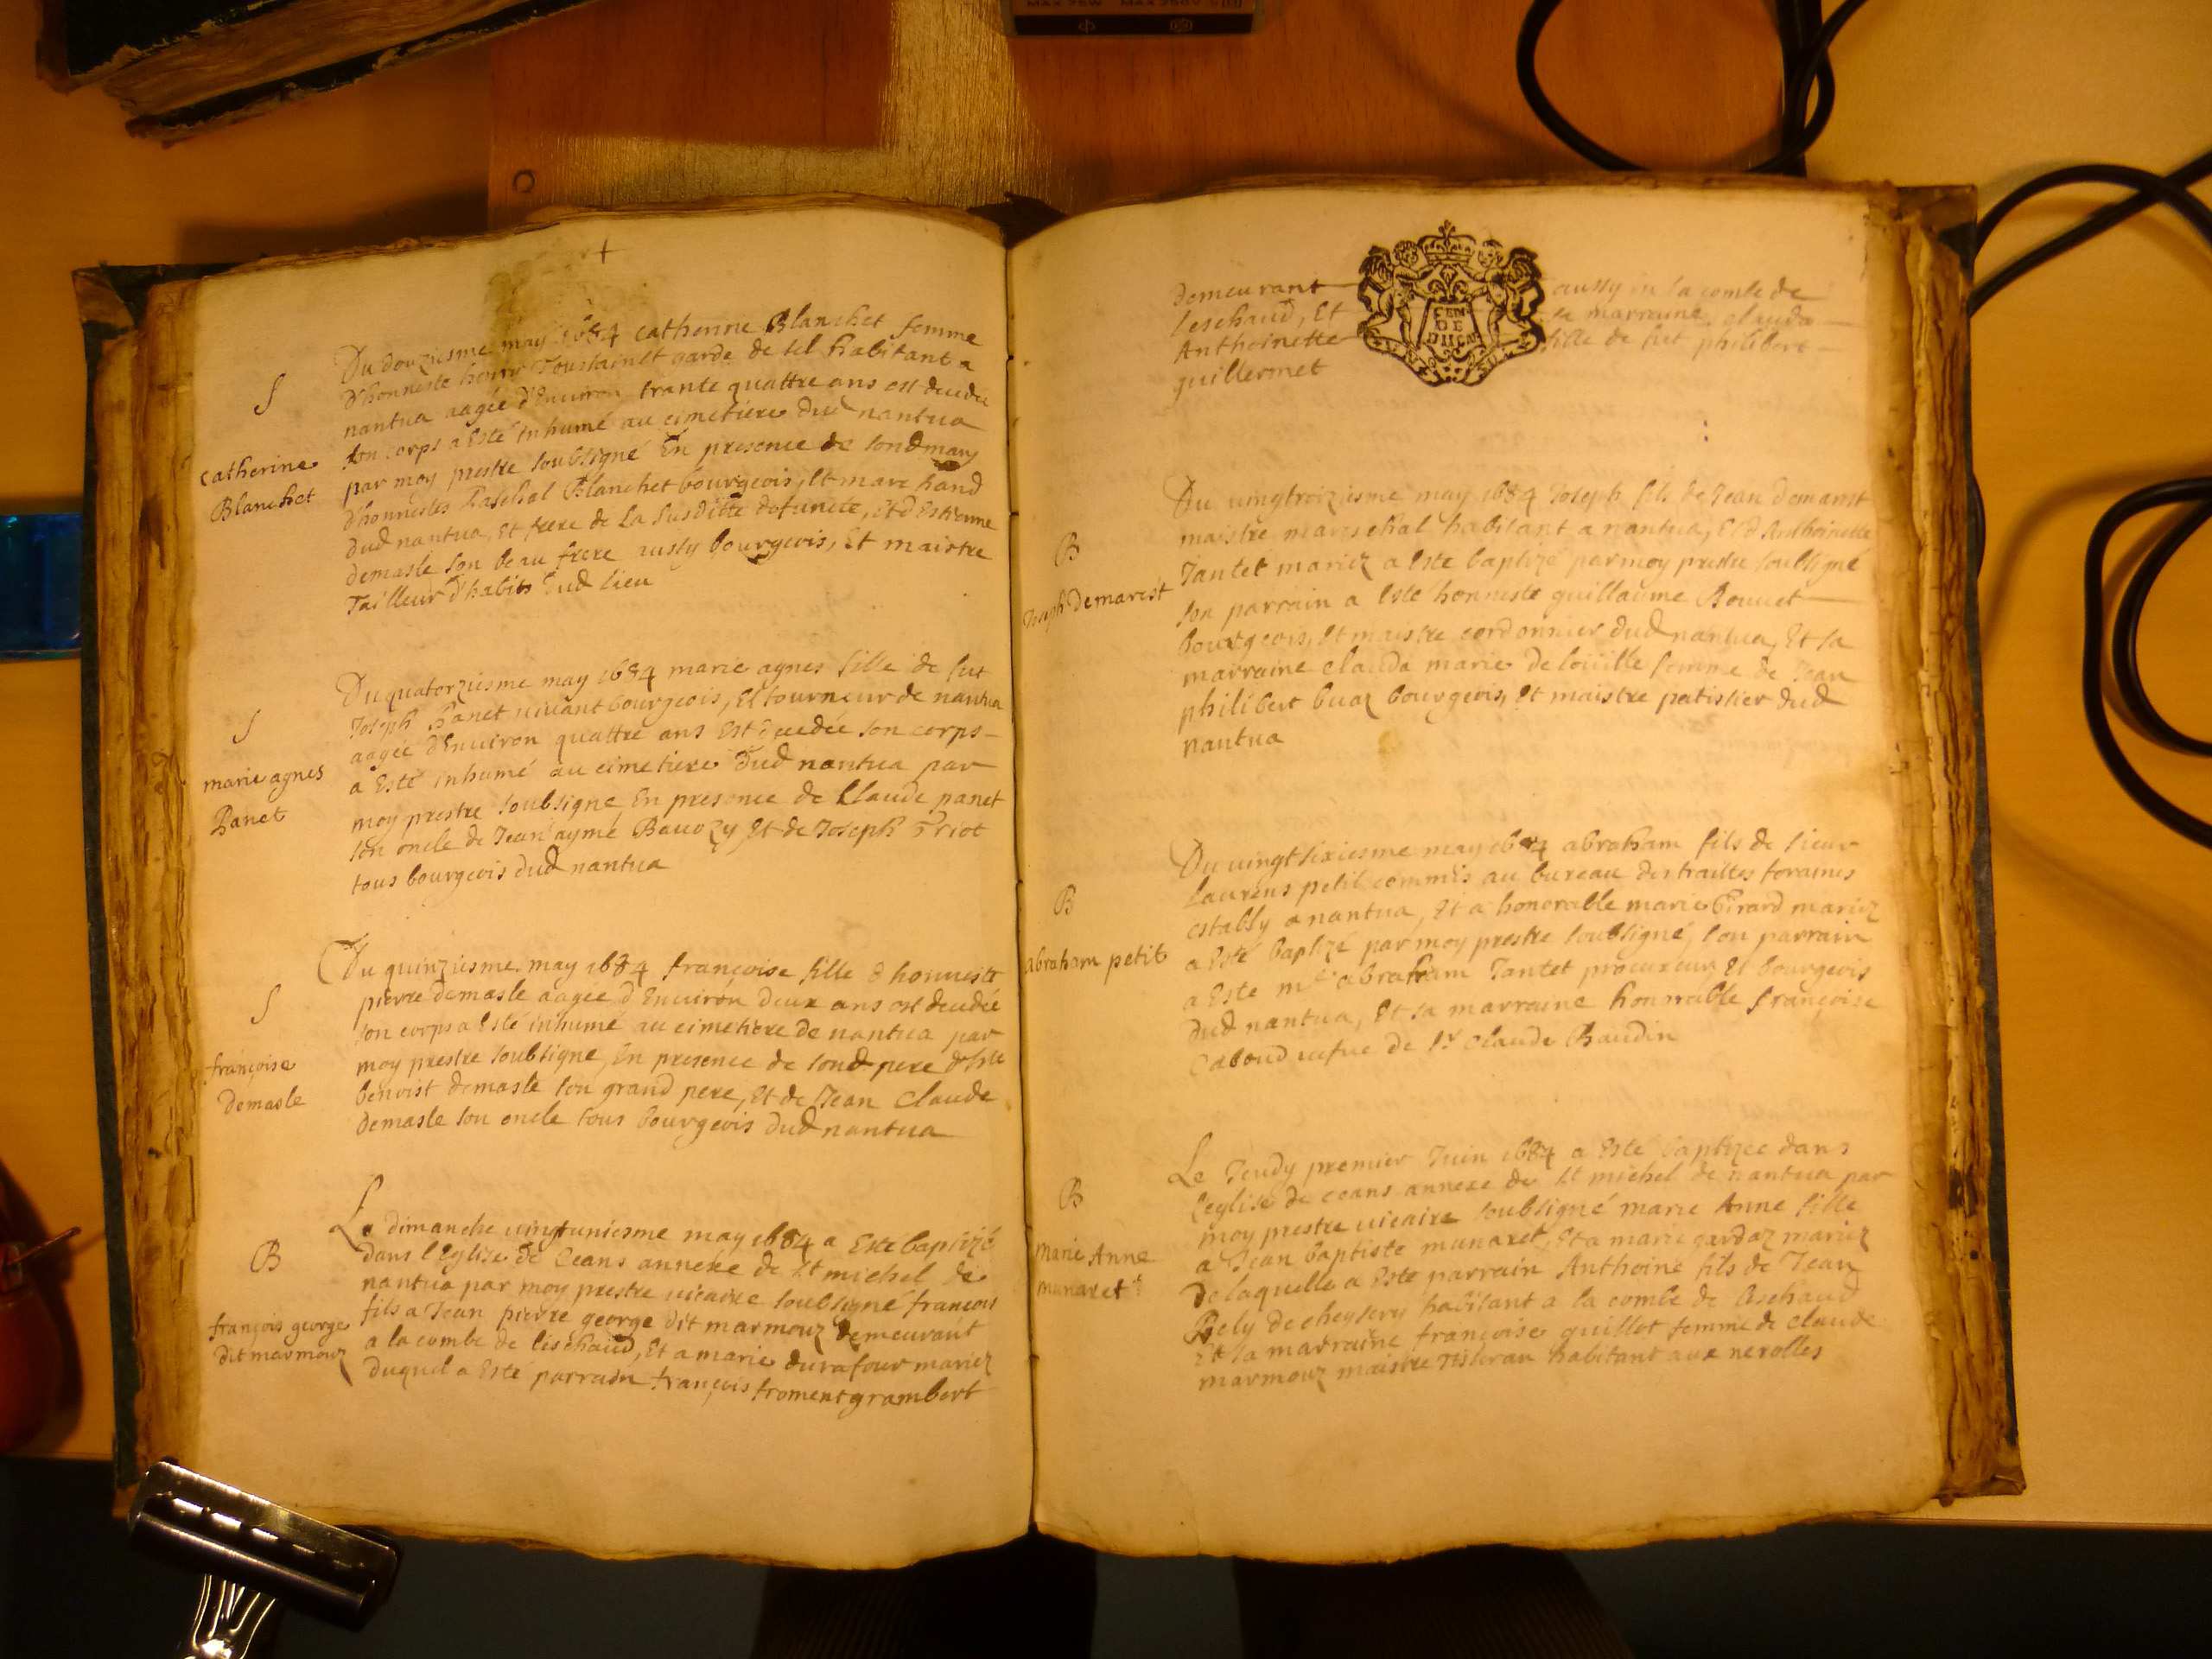 MAX 75W MAX 250V
S
catherine
Blanchet
Du douziesme may 1684 catherine Blanchet femme
d'honneste henry Toustainct garde de sel habitant a
nantua aagée d'Environ trante quattre ans est decedée
son corps a Esté inhumé au cimetiere dud nantua
par moy prestre soubsigné En presence de sond mary
d'honnestes Paschal Blanchet bourgeois, Et marchand
dud nantua, Et frere de la susditte defuncte, Et d'Estienne
demasle son beau frere aussy bourgeois, Et maistre
Tailleur d'habits dud lieu
S
marie agnes
Panet
Du quatorziesme may 1684 marie agnes fille de fut
Joseph Panet vivant bourgeois, Et tourneur de nantua
aagée d'Environ quattre ans Est decedée son corps
a Esté inhumé au cimetiere dud nantua par
moy prestre soubsigné, En presence de Claude panet
son oncle de Jean aymé Bavozy Et de Joseph Triot
tous bourgeois dud nantua
S
françoise
demasle
Du quinziesme may 1684 françoise fille d honneste
pierre demasle aagée d'Environ deux ans est decedée
son corps a Esté inhumé au cimetiere de nantua par
moy prestre soubsigné, En presence de sond pere d'hle
benoist demasle son grand pere, Et de Jean Claude
demasle son oncle tous bourgeois dud nantua
B
françois george
dit marmouz
Le dimanche vingtuniesme may 1684 a Esté baptizé
dans l'Eglise de Ceans annexe de St michel de
nantua par moy prestre vicaire soubsigné françois
fils a Jean pierre george dit marmouz demeurant
a la combe de leschaud, Et a marie durafour mariez
duquel a Esté parrain françois froment grambert
demeurant aussy en la combe de
leschaud, Et sa marraine clauda
Anthoinette fille de fut philibert
guillermet
GEN
DE
DIJON
B
Joseph Demarest
Du vingtroiziesme may 1684 Joseph fils de Jean demarest
maistre mareschal habitant a nantua, Et d'Anthoinette
Jantet mariez a Esté baptizé par moy prestre soubsigné
son parrain a Esté honneste guillaume Bouvet
bourgeois, Et maistre cordonnier dud nantua, Et sa
marraine clauda marie de femme de Jean
philibert buaz bourgeois, Et maistre patissier dud
nantua
B
abraham petit
Du vingt sixiesme may 1684 abraham fils de sieur
Laurens petit commis au bureau des traittes foraines
estably a nantua, Et a honorable marie Girard mariez
a Esté baptizé par moy prestre soubsigné, son parrain
a Esté me abraham Jantet procureur Et bourgeois
dud nantua, Et sa marraine honorable françoise
Caboud vefve de sr Claude Baudin
B
Marie Anne
munaret
Le Jeudy premier Juin 1684 a Esté baptizée dans
l'eglise de ceans annexe de St michel de nantua par
moy prestre vicaire soubsigné marie Anne fille
a Jean baptiste munaret, Et a marie gardaz mariez
de laquelle a Esté parrain Anthoine fils de Jean
Bely de cheysery habitant a la combe de leschaud
Et sa marraine françoise guillot femme de claude
marmouz maistre tisseran habitant aux nerolles